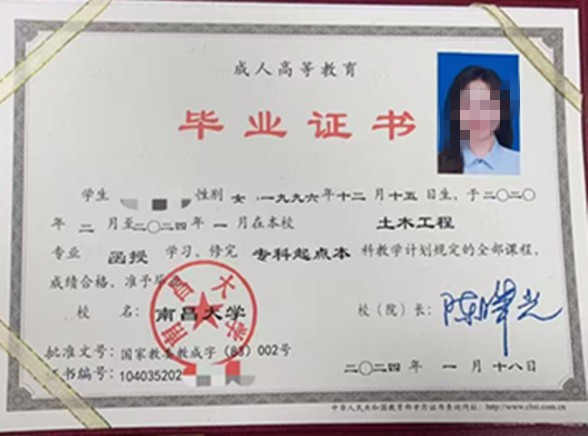 成人高等教育
毕业证书
学生 性别 女,一九九六年十二月十五日生,于二〇二〇
年 二 月至二〇二四年 一 月在本校 土木工程
专业 函授 学习,修完 专科起点本 科教学计划规定的全部课程,
成绩合格,准予毕
校 名: 南昌大学 校(院)长: 陈晔光
批准文号: 国家教委教成字(85)002号
证书编号: 104035202 二〇二四年 一 月十八日
中华人民共和国教育部学历证书查询网址: http://www.chsi.com.cn